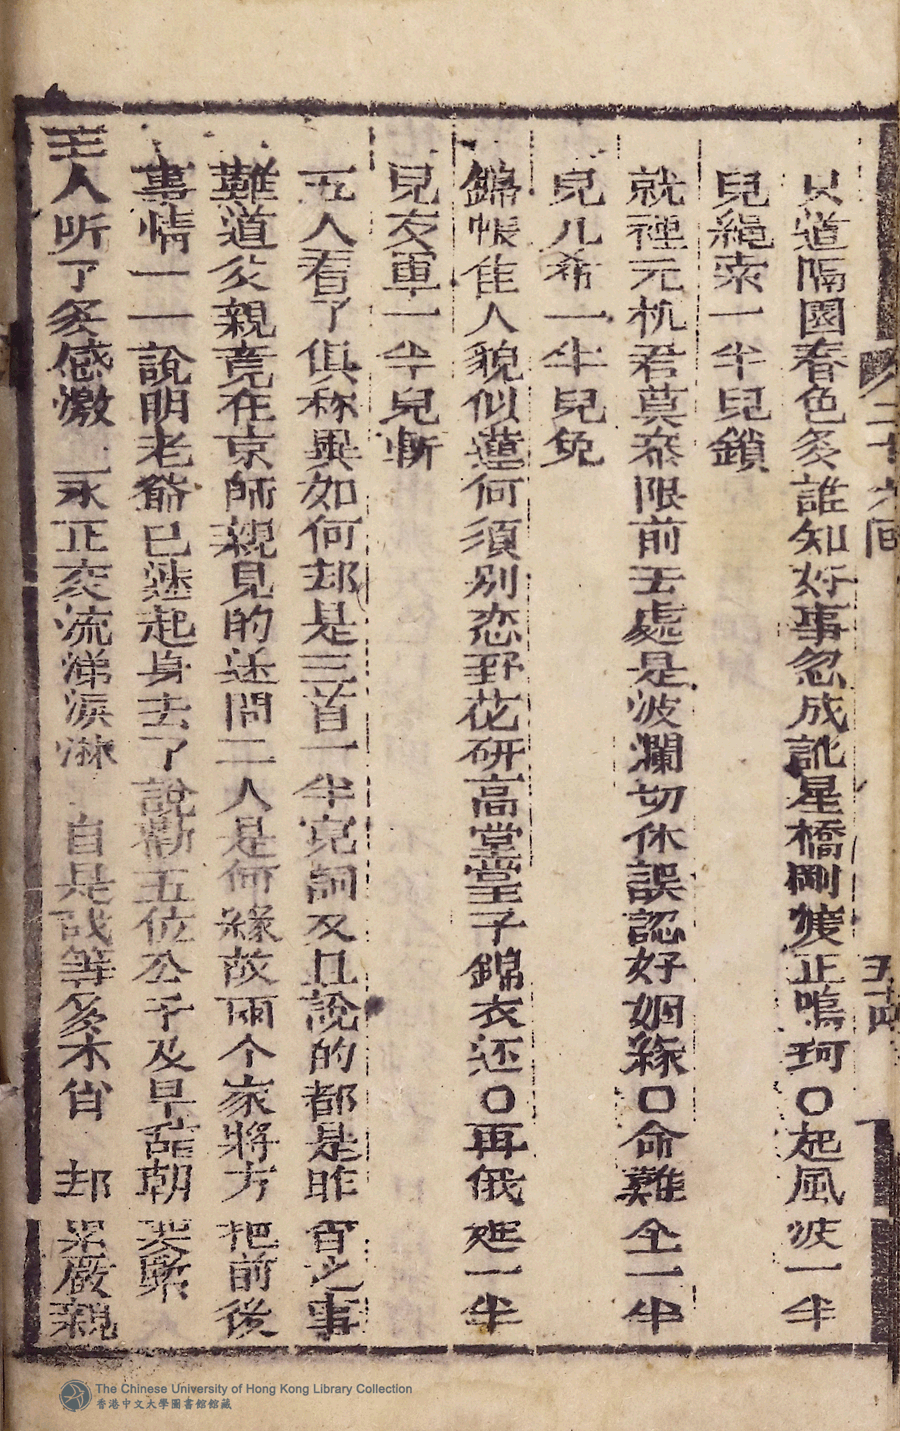 只道隔園春色多誰知好事忽成訛星橋剛渡正鳴珂〇起風波一半
兒繩索一半兒鎖
就裡元杭君莫奈限前王處是波瀾切休誤認好姻緣〇命難全一半
兒几希一半兒免
錦帳佳人貌似蓮何須别恋野花研高堂堂王子錦衣还〇再俄延一半
兒友軍一半兒斬
五人看了俱称異如何却是三首一半兒詞及且說的都是昨宵之事
難道父親竟在京師親見的还問二人是何緣故兩个家將方把前後
事情一一說明老爺已起身去了說勸五位公子及早話朝
主人听了多感激二永正亥流涕淚淋自是我等多不省却累嚴親
二十六回
五十四
The Chinese University of Hong Kong Library Collection
香港中文大學圖書館館藏